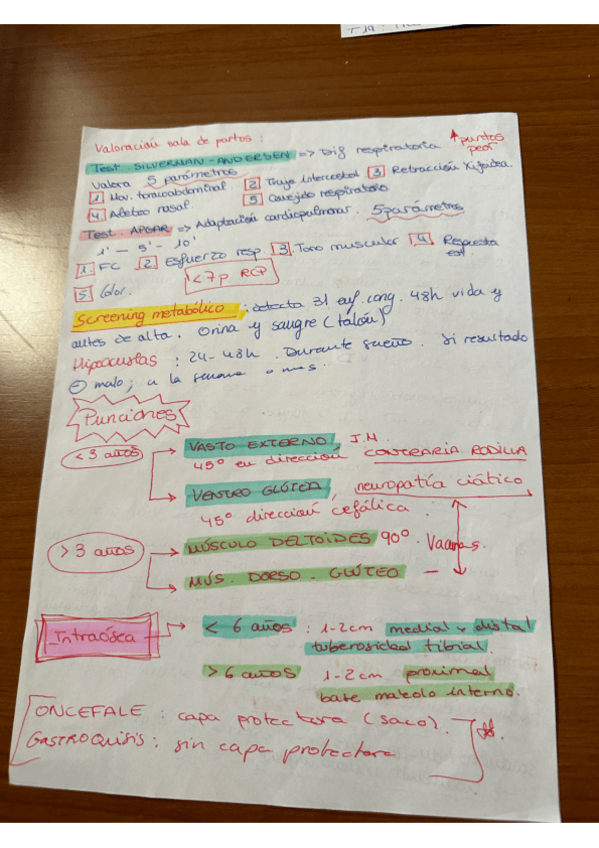 Valoración sala de partos :
Test. SILVERMAN - ANDERSEN => Dif respiratoria ↑ puntos peor
Valora 5 parámetros
1 Mov. toracoabdominal 2 Tiraje intercostal 3 Retracción xifoidea.
4 Aleteo nasal. 5 Quejido respiratorio
Test. APGAR => Adaptación cardiopulmonar. 5 parámetros
1' — 5' - 10'
1 FC 2 Esfuerzo resp. 3 Tono muscular 4 Respuesta est.
5 Color. < 7p RCP
Screening metabólico : detecta 31 enf. cong. 48h vida y
antes de alta. Orina y sangre (talón)
Hipoacusias : 24-48h. Durante sueño. Si resultado
⊖ malo; a la semana o mes.
Punciones
< 3 años
VASTO EXTERNO, I.M.
45º en dirección CONTRARIA RODILLA
VENTRO GLÚTEA, neuropatía ciático
45º dirección cefálica.
> 3 años
MÚSCULO DELTOIDES 90º. Vacunas.
MÚS. DORSO - GLÚTEO —
Intraósea
< 6 años : 1-2cm medial y distal
tuberosidad tibial.
> 6 años 1-2cm proximal
base maleolo interno.
ONCEFALE : capa protectora (saco).
GASTROQUISIS : sin capa protectora